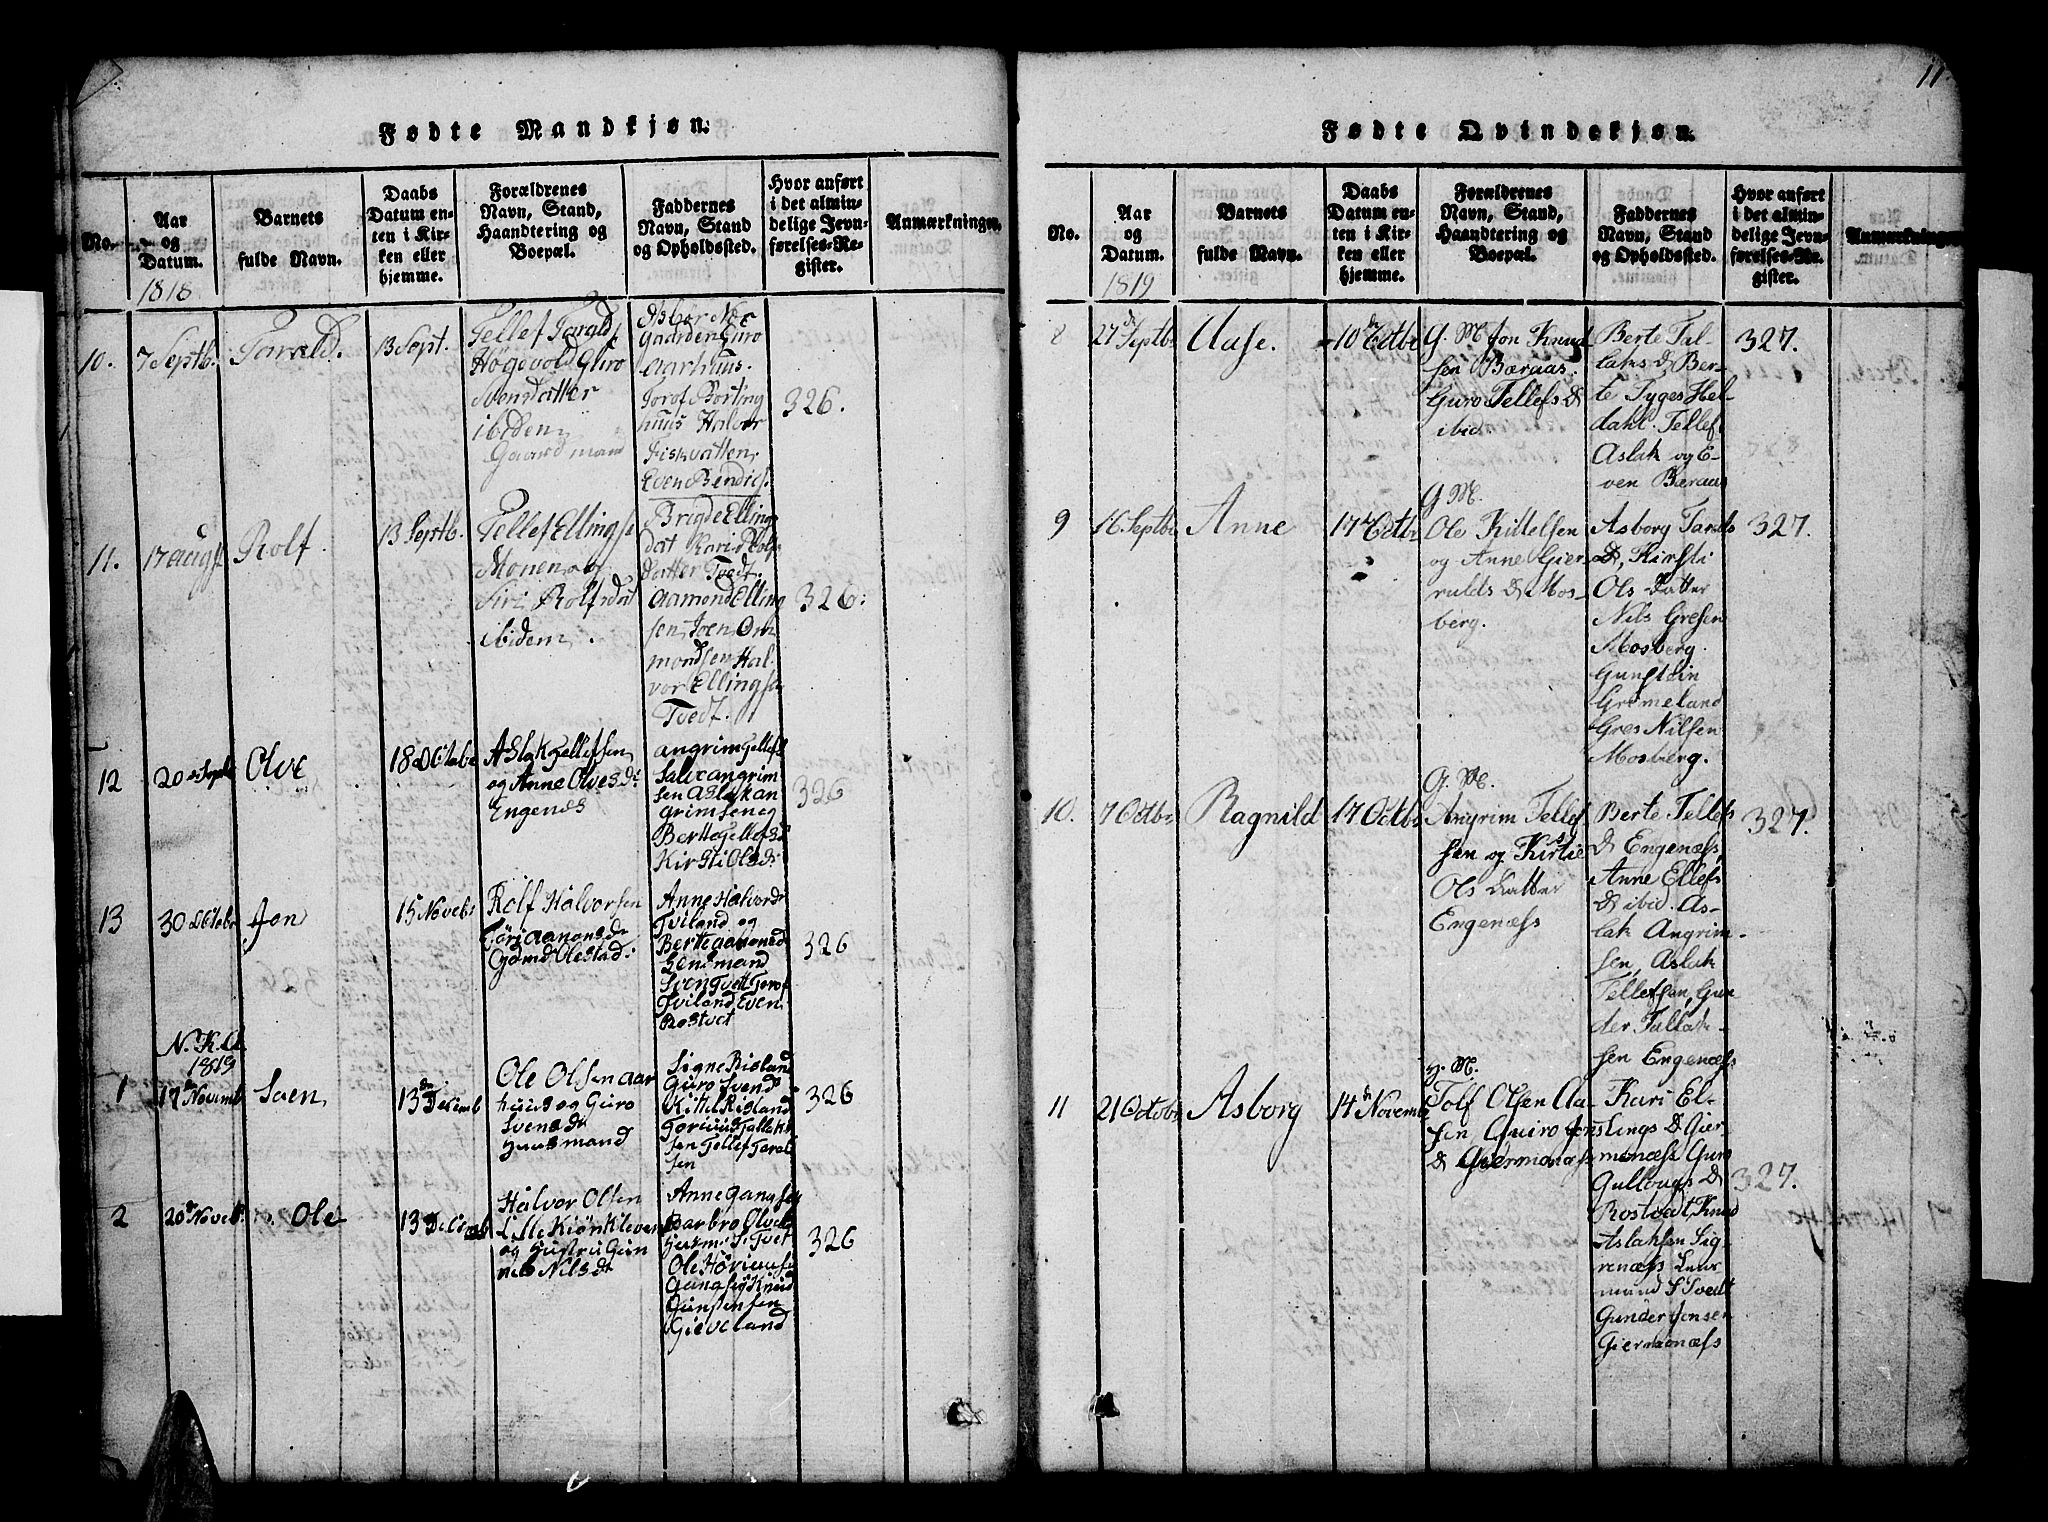 Fødte Mandkjøn.
No.
Aar
og
Datum.
1818
Barnets
fulde Navn.
Daabs
Datum en-
ten i Kir-
ken eller
hjemme.
Forældrenes
Navn, Stand,
Haandtering og
Boepæl.
Faddernes
Navn, Stand
og Opholdssted.
Hvor anført
i det almin-
delige Jevn-
førelses-Re-
gister.
Anmærkninger.
10.
7 Septb.
Tarald.
13 Sept.
Tellef Tarald
Høgevold Guro
Svendatter
ibidem
Gaardmand
Asbør Næs
gaarden Guro
Aarhuus.
Torof
huus Halvor
Fiskvatten
Even Bendics.
326.
11.
17 Augst
Rolf.
13 Septb.
Tellef Ellingse
Monen og
Siri Rolfsdat
ibidem.
Brigde Ellings
dat Kari Rolfs
datter Tvedt.
Aamond Elling
sen, Joen Om
mondsen Hal
vor Ellingse
Tvedt.
326.
12
20 de Septb
Olve
18 Octobe
Aslak Tellefsen
og Anne Olvesdr
Engenes
Angrim Tellefs
Salve Angrim
sen Aslak An
grimsen og
Berthe Tellefsd
Kirsti Olsdr
326
13
30 October
Jon
15 Novebr
Rolf Halvorsen
Tøri Aanonsdr
Gdmd Olestad
Anne Halvordr
Tviland og
Berthe Aanonsd
Lensmand
Sveng Tvett Torof
Tviland Even
Rostvet
326
1819
1
17 Novemb
Soen
13 de Decemb
Ole Olsen Aar
huus og Guro
Svensdr
Huusmand
Signe Risland
Guro Svends
Kittel Risland
Tallaks
sen Tellef Taral
sen
326
2
20 Noveb.
Ole
13 Decemb
Halvor Olsen
Lille Kiørrkleven
og Hustru Gun
nild Nilsdr
Anne Gangsøy
Barbro Olve
Husm: S. Tvet
Ole
Gangsøy Knud
Gunstensen
Gieveland
326
11
Fødte Qvindekjøn.
No.
Aar
og
Datum.
1819
Barnets
fulde Navn.
Daabs
Datum en-
ten i Kir-
ken eller
hjemme.
Forældrenes
Navn, Stand,
Haandtering og
Boepæl.
Faddernes
Navn, Stand
og Opholdssted.
Hvor anført
i det almin-
delige Jevn-
førelses-Re-
gister.
Anmærkninger
8
27 de Septbr
Aase.
10 de Octbr
G. M. Jon Knud
sen Bæraas.
Guro Tellefs D
ibid.
Berte Tal-
laks D Ber-
te Tyges Hel-
dahl. Tellef
Aslak og E-
ven Bæraas
327.
9
16 Septbr
Anne
17 de Octbr
G. M.
Ole Kittelsen
og Anne Gier-
rulds D Mos-
berg.
Asborg Tarels
D, Kirsti
Ols Datter
Nils Gresen
Mosberg.
Gunstein
Grimeland
Gres Nilsen
Mosberg.
327.
10.
7 Octbr
Ragnild
17 Octbr
G. M.
Angrim Tellef
sen og Kirstie
Ols Datter
Engenæss
Berte Tellefs
D Engenæss,
Anne Ellefs
D ibid. As-
lak Angrim-
sen, Aslak
Tellefsen, Gun
der Tallak-
sen Engenæss
327.
11
21 Octobr
Asborg
14 de Novemb
H. M.
Tolf Olsen Aa-
sen Guro Jons
D Giermonæss
Kari El-
lings D Gier-
monæss Guro
Gullougs D
Rostvedt, Knud
Aslaksen Sig-
renæss Lens
mand S Tvedt
Gunder Jonsen
Giermonæss
327.